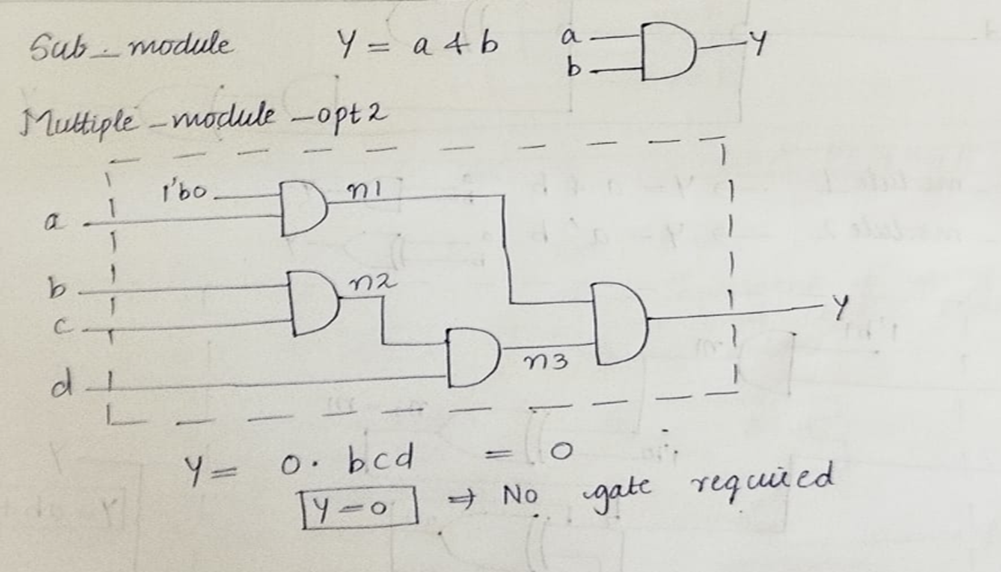 Sub_module Y = a & b a b Y
Multiple_module_opt2
1'b0 n1
a
b n2
c
y
n3
d
Y = 0. bcd = 0
Y=0 ⇒ No gate required